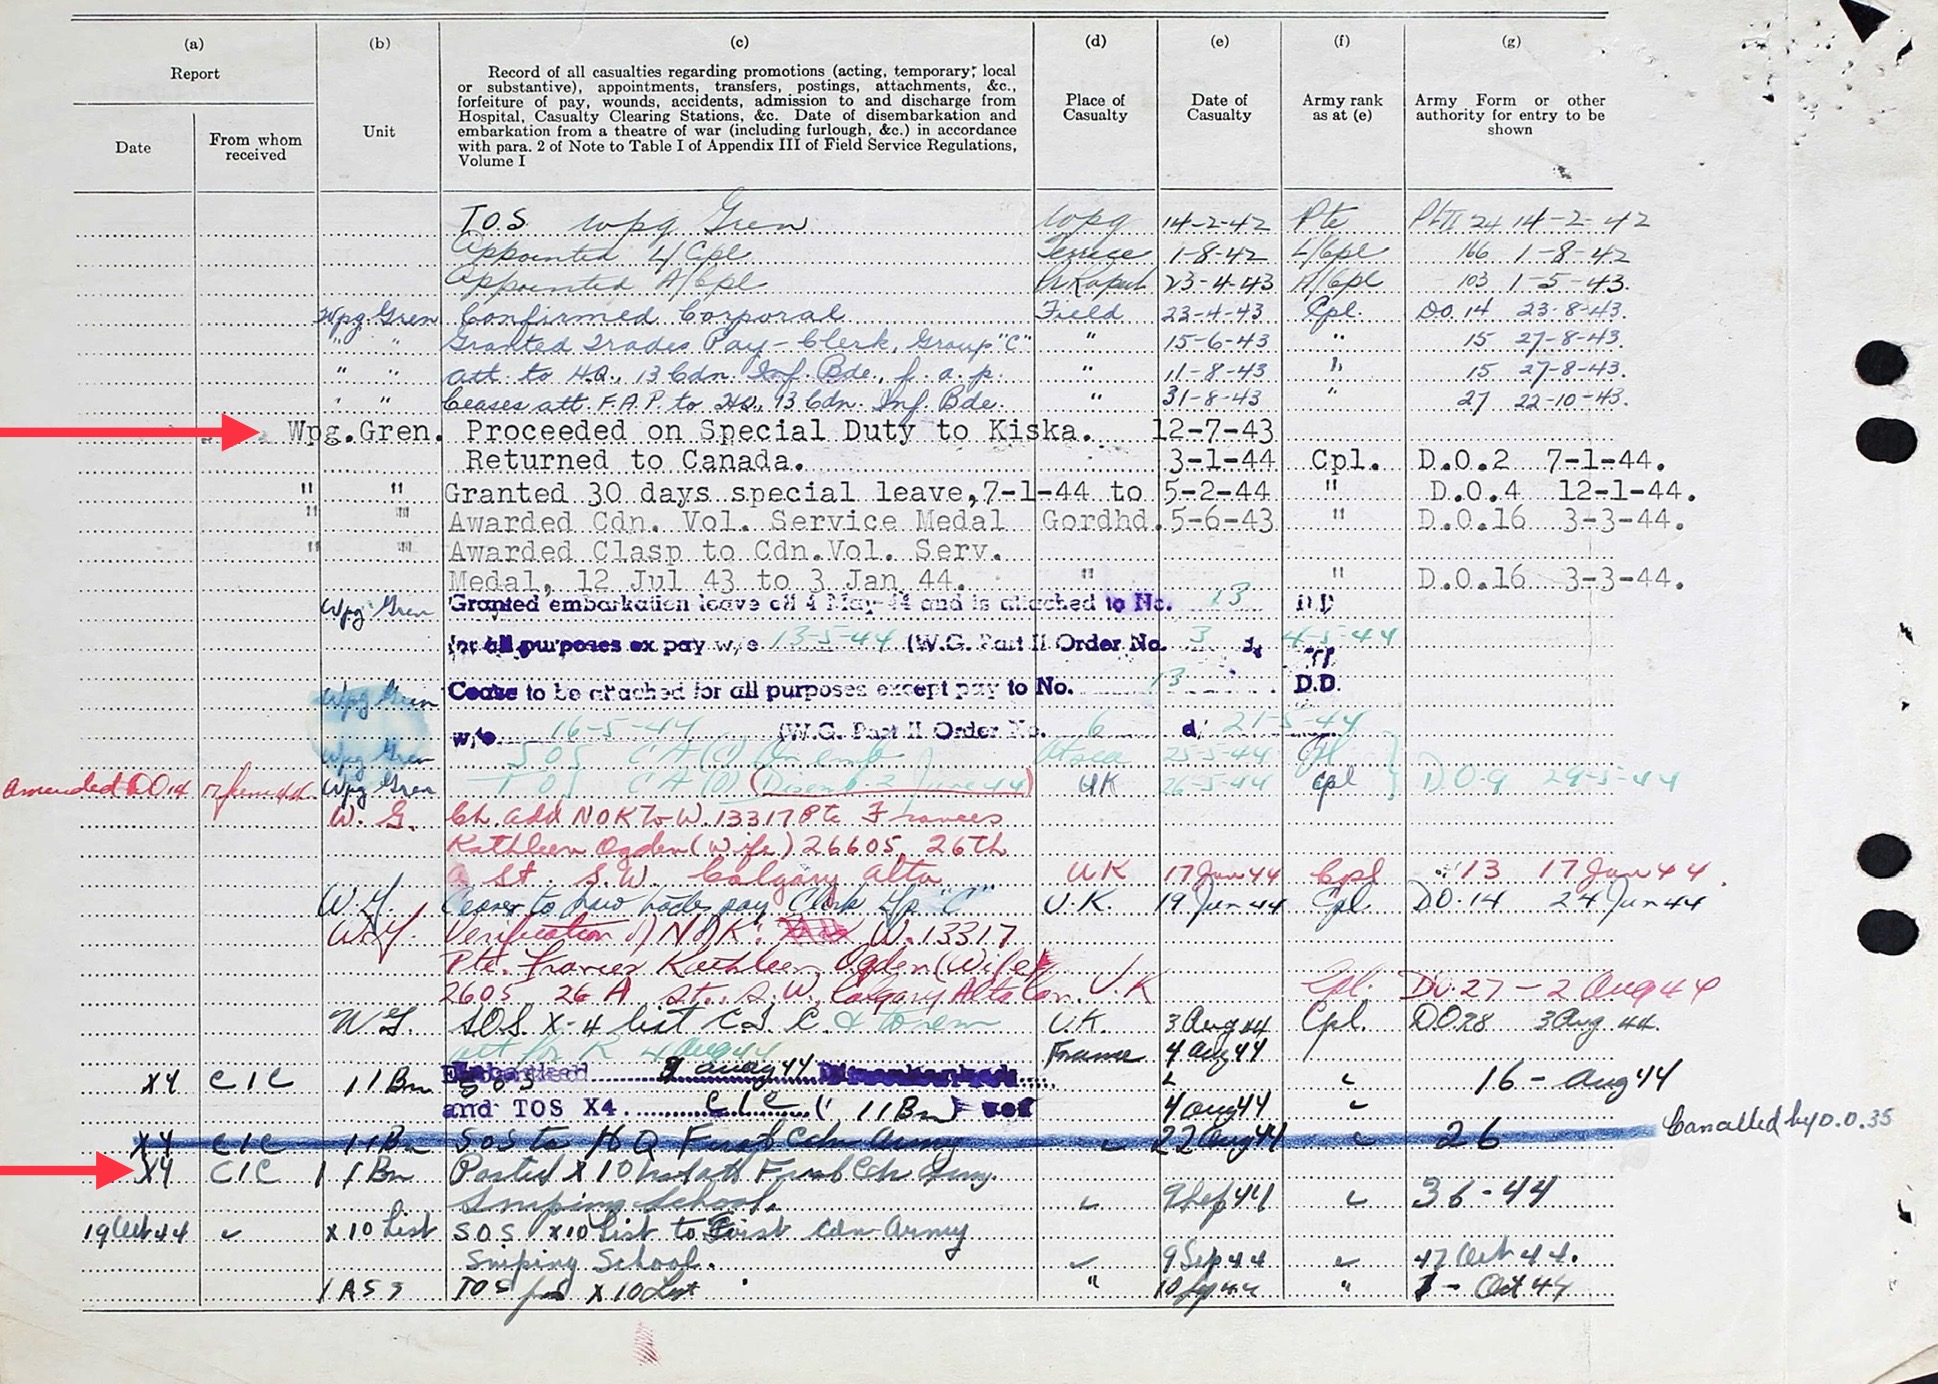 (a) (b) (c) (d) (e) (f) (g)
Report
Date
From whom received
Unit
Record of all casualties regarding promotions (acting, temporary, local
or substantive), appointments, transfers, postings, attachments, &c.,
forfeiture of pay, wounds, accidents, admission to and discharge from
Hospital, Casualty Clearing Stations, &c. Date of disembarkation and
embarkation from a theatre of war (including furlough, &c.) in accordance
with para. 2 of Note to Table I of Appendix III of Field Service Regulations,
Volume I
Place of Casualty
Date of Casualty
Army rank as at (e)
Army Form or other authority for entry to be shown
TOS Wpg Gren Wpg 14-2-42 Pte Pt II 24 14-2-42
Appointed L/Cpl Terrace 1-8-42 L/Cpl 166 1-8-42
Appointed A/Cpl 23-4-43 A/Cpl 103 1-5-43.
Wpg Gren Confirmed Corporal Field 23-4-43 Cpl. DO 14 23-8-43.
" " Granted Trades Pay - Clerk, Group "C" " 15-6-43 " 15 27-8-43.
" " Att. to H.Q., 13 Cdn Inf. Bde., f. a. p. " 11-8-43 " 15 27-8-43.
" " Ceases att. F.A.P. to HQ, 13 Cdn. Inf. Bde. " 31-8-43 " 27 22-10-43.
Wpg.Gren. Proceeded on Special Duty to Kiska. 12-7-43
Returned to Canada. 3-1-44 Cpl. D.O.2 7-1-44.
" " Granted 30 days special leave,7-1-44 to 5-2-44 " D.O.4 12-1-44.
" " Awarded Cdn. Vol. Service Medal Gordhd. 5-6-43 " D.O.16 3-3-44.
" " Awarded Clasp to Cdn.Vol. Serv.
Medal, 12 Jul 43 to 3 Jan 44. " " D.O.16 3-3-44.
Wpg Gren Granted embarkation leave eff 4 May-44 and is attached to No. 13 D.D
for all purposes ex pay w/e 13-5-44 (W.G. Part II Order No. 3 d, 4-5-44
Wpg Gren Cease to be attached for all purposes except pay to No. 13 D.D.
w/e 16-5-44 (W.G. Part II Order No. 6 d/ 21-5-44
Wpg Gren SOS CA(C) On emb At sea 25-5-44 Cpl
Amended DO 14 Wpg Gren TOS CA(O) (Disemb. 2 June 44) UK 26-5-44 Cpl DO 9 29-5-44
W. G. Ch. add NOK to W.13317 Pte Frances
Kathleen Ogden (Wife) 26605 26th
a St. S.W. Calgary Alta UK 17 Jun 44 Cpl 13 17 Jun 44.
W.G. Ceases to draw trades pay Clerk Gp "C" U.K. 19 Jun 44 Cpl. DO.14 24 Jun 44
W.G. Verification of N of K: W. 13317
Pte. Frances Kathleen Ogden (Wife)
2605 26 A St. S.W. Calgary Alta Can. U.K Cpl. DO.27 - 2 Aug 44
W G. SOS X-4 list C.I.C. & to rem U.K. 3 Aug 44 Cpl. DO 28 3 Aug 44.
att for R 4 Aug 44 France 4 Aug 44
X4 CIC 11 Bn Embarked SOS Aug 44 Disembarked 16 - Aug 44
and TOS X4 CIC (11 Bn) 4 Aug 44
X4 CIC 11 Bn SOS to HQ First Cdn Army 22 Aug 44 26 Cancelled by D.O.35
X4 CIC 11 Bn Posted X10 list att First Cdn Army
Sniping School. 9 Sep 44 36-44
19 Oct 44 X10 List SOS X10 List to First Cdn Army
Sniping School. 9 Sep 44 Oct 44.
TOS X10 List " 10 Sep 44 " Oct 44